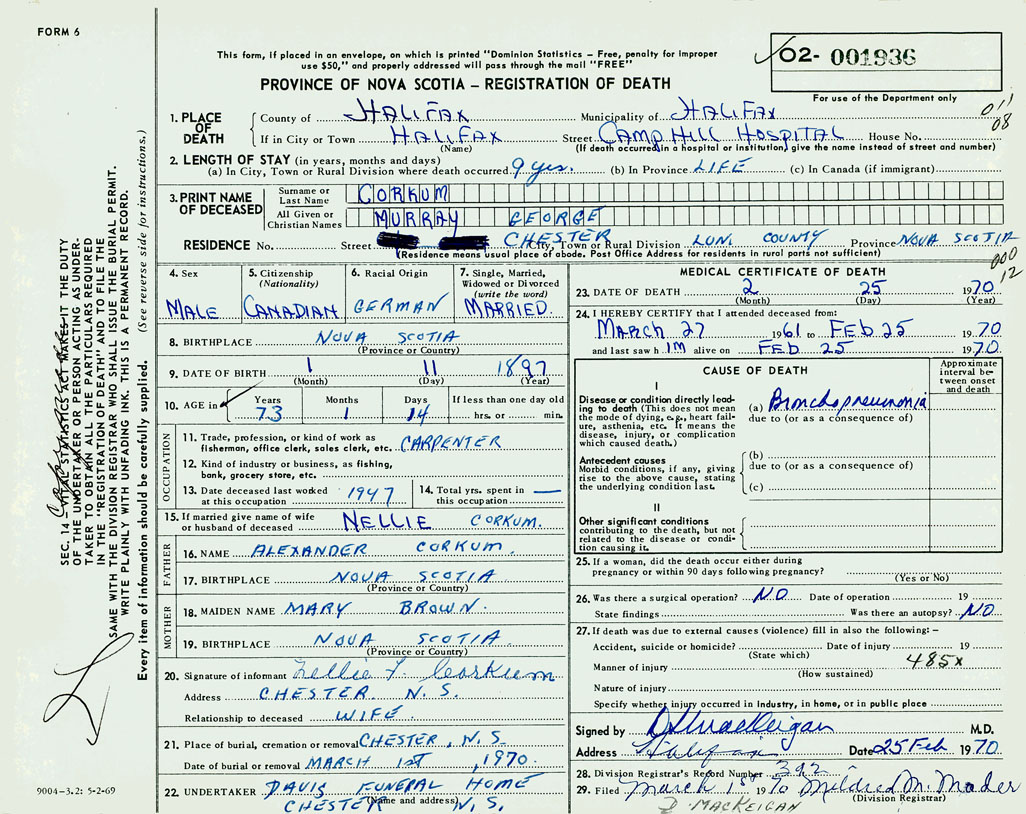 FORM 6
This form, if placed in an envelope, on which is printed "Dominion Statistics - Free, penalty for improper
use $50," and properly addressed will pass through the mail "FREE"
O2- 001936
For use of the Department only
PROVINCE OF NOVA SCOTIA - REGISTRATION OF DEATH
011
08
1. PLACE OF DEATH
County of HALIFAX Municipality of HALIFAX
If in City or Town HALIFAX Street CAMP HILL HOSPITAL House No.
(Name) (If death occurred in a hospital or institution, give the name instead of street and number)
2. LENGTH OF STAY (in years, months and days)
(a) In City, Town or Rural Division where death occurred 9 yrs. (b) In Province LIFE (c) In Canada (if immigrant)
3. PRINT NAME OF DECEASED
Surname or Last Name CORKUM
All Given or Christian Names MURRAY GEORGE
RESIDENCE No. Street CHESTER City, Town or Rural Division LUN. COUNTY Province NOVA SCOTIA
(Residence means usual place of abode. Post Office Address for residents in rural parts not sufficient)
000
12
4. Sex MALE
5. Citizenship (Nationality) CANADIAN
6. Racial Origin GERMAN
7. Single, Married, Widowed or Divorced (write the word) MARRIED.
8. BIRTHPLACE NOVA SCOTIA
(Province or Country)
9. DATE OF BIRTH 1 11 1897
(Month) (Day) (Year)
10. AGE in Years 73 Months 1 Days 14 If less than one day old
hrs. or min.
OCCUPATION
11. Trade, profession, or kind of work as
fisherman, office clerk, sales clerk, etc. CARPENTER
12. Kind of industry or business, as fishing,
bank, grocery store, etc.
13. Date deceased last worked
at this occupation 1947
14. Total yrs. spent in
this occupation —
15. If married give name of wife
or husband of deceased NELLIE CORKUM.
FATHER
16. NAME ALEXANDER CORKUM.
17. BIRTHPLACE NOVA SCOTIA
(Province or Country)
MOTHER
18. MAIDEN NAME MARY BROWN.
19. BIRTHPLACE NOVA SCOTIA
(Province or Country)
20. Signature of informant Nellie F. Corkum
Address CHESTER N.S.
Relationship to deceased WIFE.
21. Place of burial, cremation or removal CHESTER, N.S.
Date of burial or removal MARCH 1ST, 1970
22. UNDERTAKER DAVIS FUNERAL HOME
(Name and address)
CHESTER N.S.
MEDICAL CERTIFICATE OF DEATH
23. DATE OF DEATH 2 25 1970
(Month) (Day) (Year)
24. I HEREBY CERTIFY that I attended deceased from:
MARCH 27 1961 to FEB 25 1970
and last saw him alive on FEB 25 1970
CAUSE OF DEATH
Approximate interval between onset and death
I
Disease or condition directly leading to death (This does not mean the mode of dying, e.g., heart failure, asthenia, etc. It means the disease, injury, or complication which caused death.)
(a) Bronchopneumonia
due to (or as a consequence of)
Antecedent causes
Morbid conditions, if any, giving rise to the above cause, stating the underlying condition last.
(b)
due to (or as a consequence of)
(c)
II
Other significant conditions
contributing to the death, but not related to the disease or condition causing it.
25. If a woman, did the death occur either during
pregnancy or within 90 days following pregnancy?
(Yes or No)
26. Was there a surgical operation? NO Date of operation 19
State findings Was there an autopsy? NO
27. If death was due to external causes (violence) fill in also the following: -
Accident, suicide or homicide? Date of injury 19
(State which) 485x
Manner of injury
(How sustained)
Nature of injury
Specify whether injury occurred in Industry, in home, or in public place
Signed by D. MacKeigan M.D.
Address Halifax Date 25 Feb 1970
28. Division Registrar's Record Number 392
29. Filed March 1st 1970 Mildred M. Mader
(Division Registrar)
D. MACKEIGAN
SEC. 14 - VITAL STATISTICS ACT MAKES IT THE DUTY
OF THE UNDERTAKER OR PERSON ACTING AS UNDER-
TAKER TO OBTAIN ALL THE PARTICULARS REQUIRED
IN THE "REGISTRATION OF DEATH" AND TO FILE THE
SAME WITH THE DIVISION REGISTRAR WHO SHALL ISSUE THE BURIAL PERMIT.
WRITE PLAINLY WITH UNFADING INK. THIS IS A PERMANENT RECORD.
Every item of information should be carefully supplied. (See reverse side for instructions.)
9004-3.2: 5-2-69